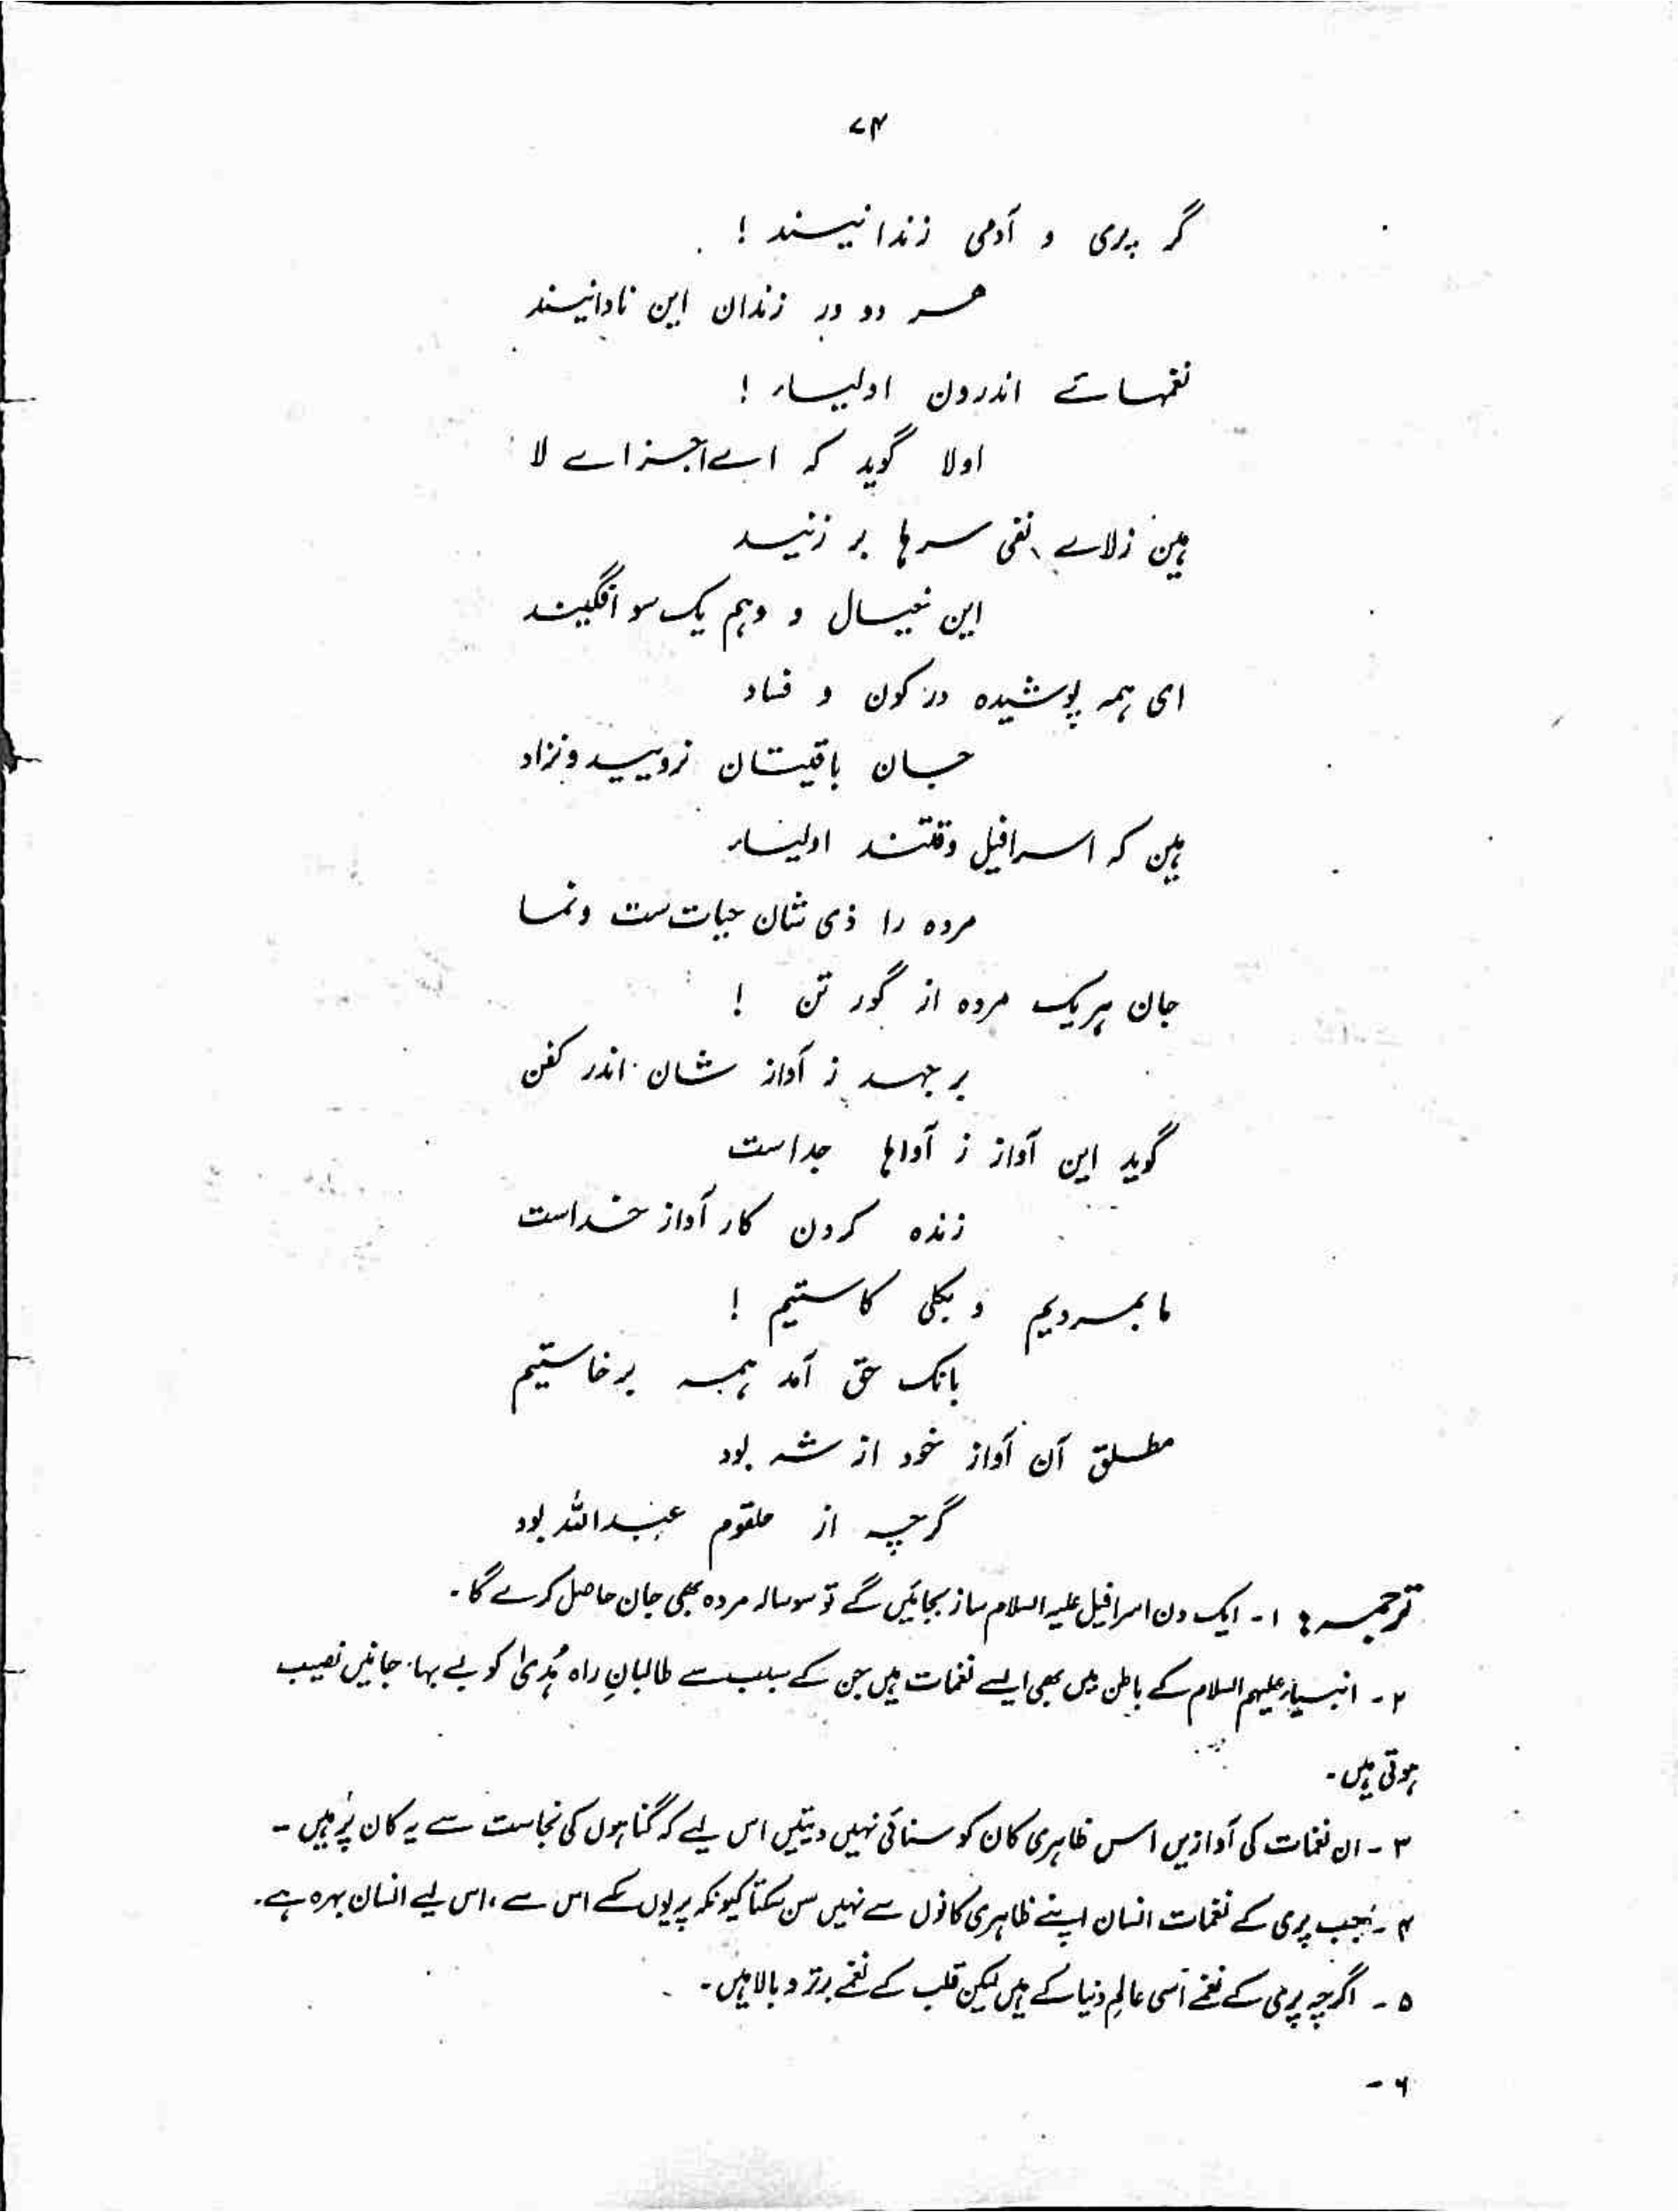 ۷۴
گر پری و آدمی زندانیند !
ہر دو در زندان این نادانیند
نغمہائے اندرون اولیاء !
اولا گوید کہ اے اجزاے لا
ہین زلاے نفی سرہا بر زنید
این خیال و وہم یک سو افگنید
ای ہمہ پوشیدہ در کون و فساد
جان باقیتان نروییدونزاد
ہین کہ اسرافیل وقتند اولیاء
مردہ را ذی شان حیات ست ونما
جان ہریک مردہ از گور تن !
بر جہد ز آواز شان اندر کفن
گوید این آواز ز آواہا جداست
زندہ کردن کار آواز خداست
ما بمردیم و بکلی کاستیم !
بانک حق آمد ہمہ برخاستیم
مطلق آن آواز خود از شہ بود
گرچہ از حلقوم عبداللہ بود
ترجمہ : ۱ - ایک دن اسرافیل علیہ السلام ساز بجائیں گے تو سوسالہ مردہ بھی جان حاصل کرے گا۔
۲ - انبیاء علیہم السلام کے باطن میں بھی ایسے نغمات ہیں جن کے سبب سے طالبانِ راہ ہُدیٰ کو بے بہا جانیں نصیب
ہوتی ہیں۔
۳ - ان نغمات کی آوازیں اس ظاہری کان کو سنائی نہیں دیتیں اس لیے کہ گناہوں کی نجاست سے یہ کان پُر ہیں -
۴ - جب پری کے نغمات انسان اپنے ظاہری کانوں سے نہیں سن سکتا کیونکہ پریوں کے اس سے ، اس لیے انسان بہرہ ہے۔
۵ - اگرچہ پری کے نغمے اسی عالمِ دنیا کے ہیں لیکن قلب کے نغمے برتر و بالا ہیں۔
۶ -